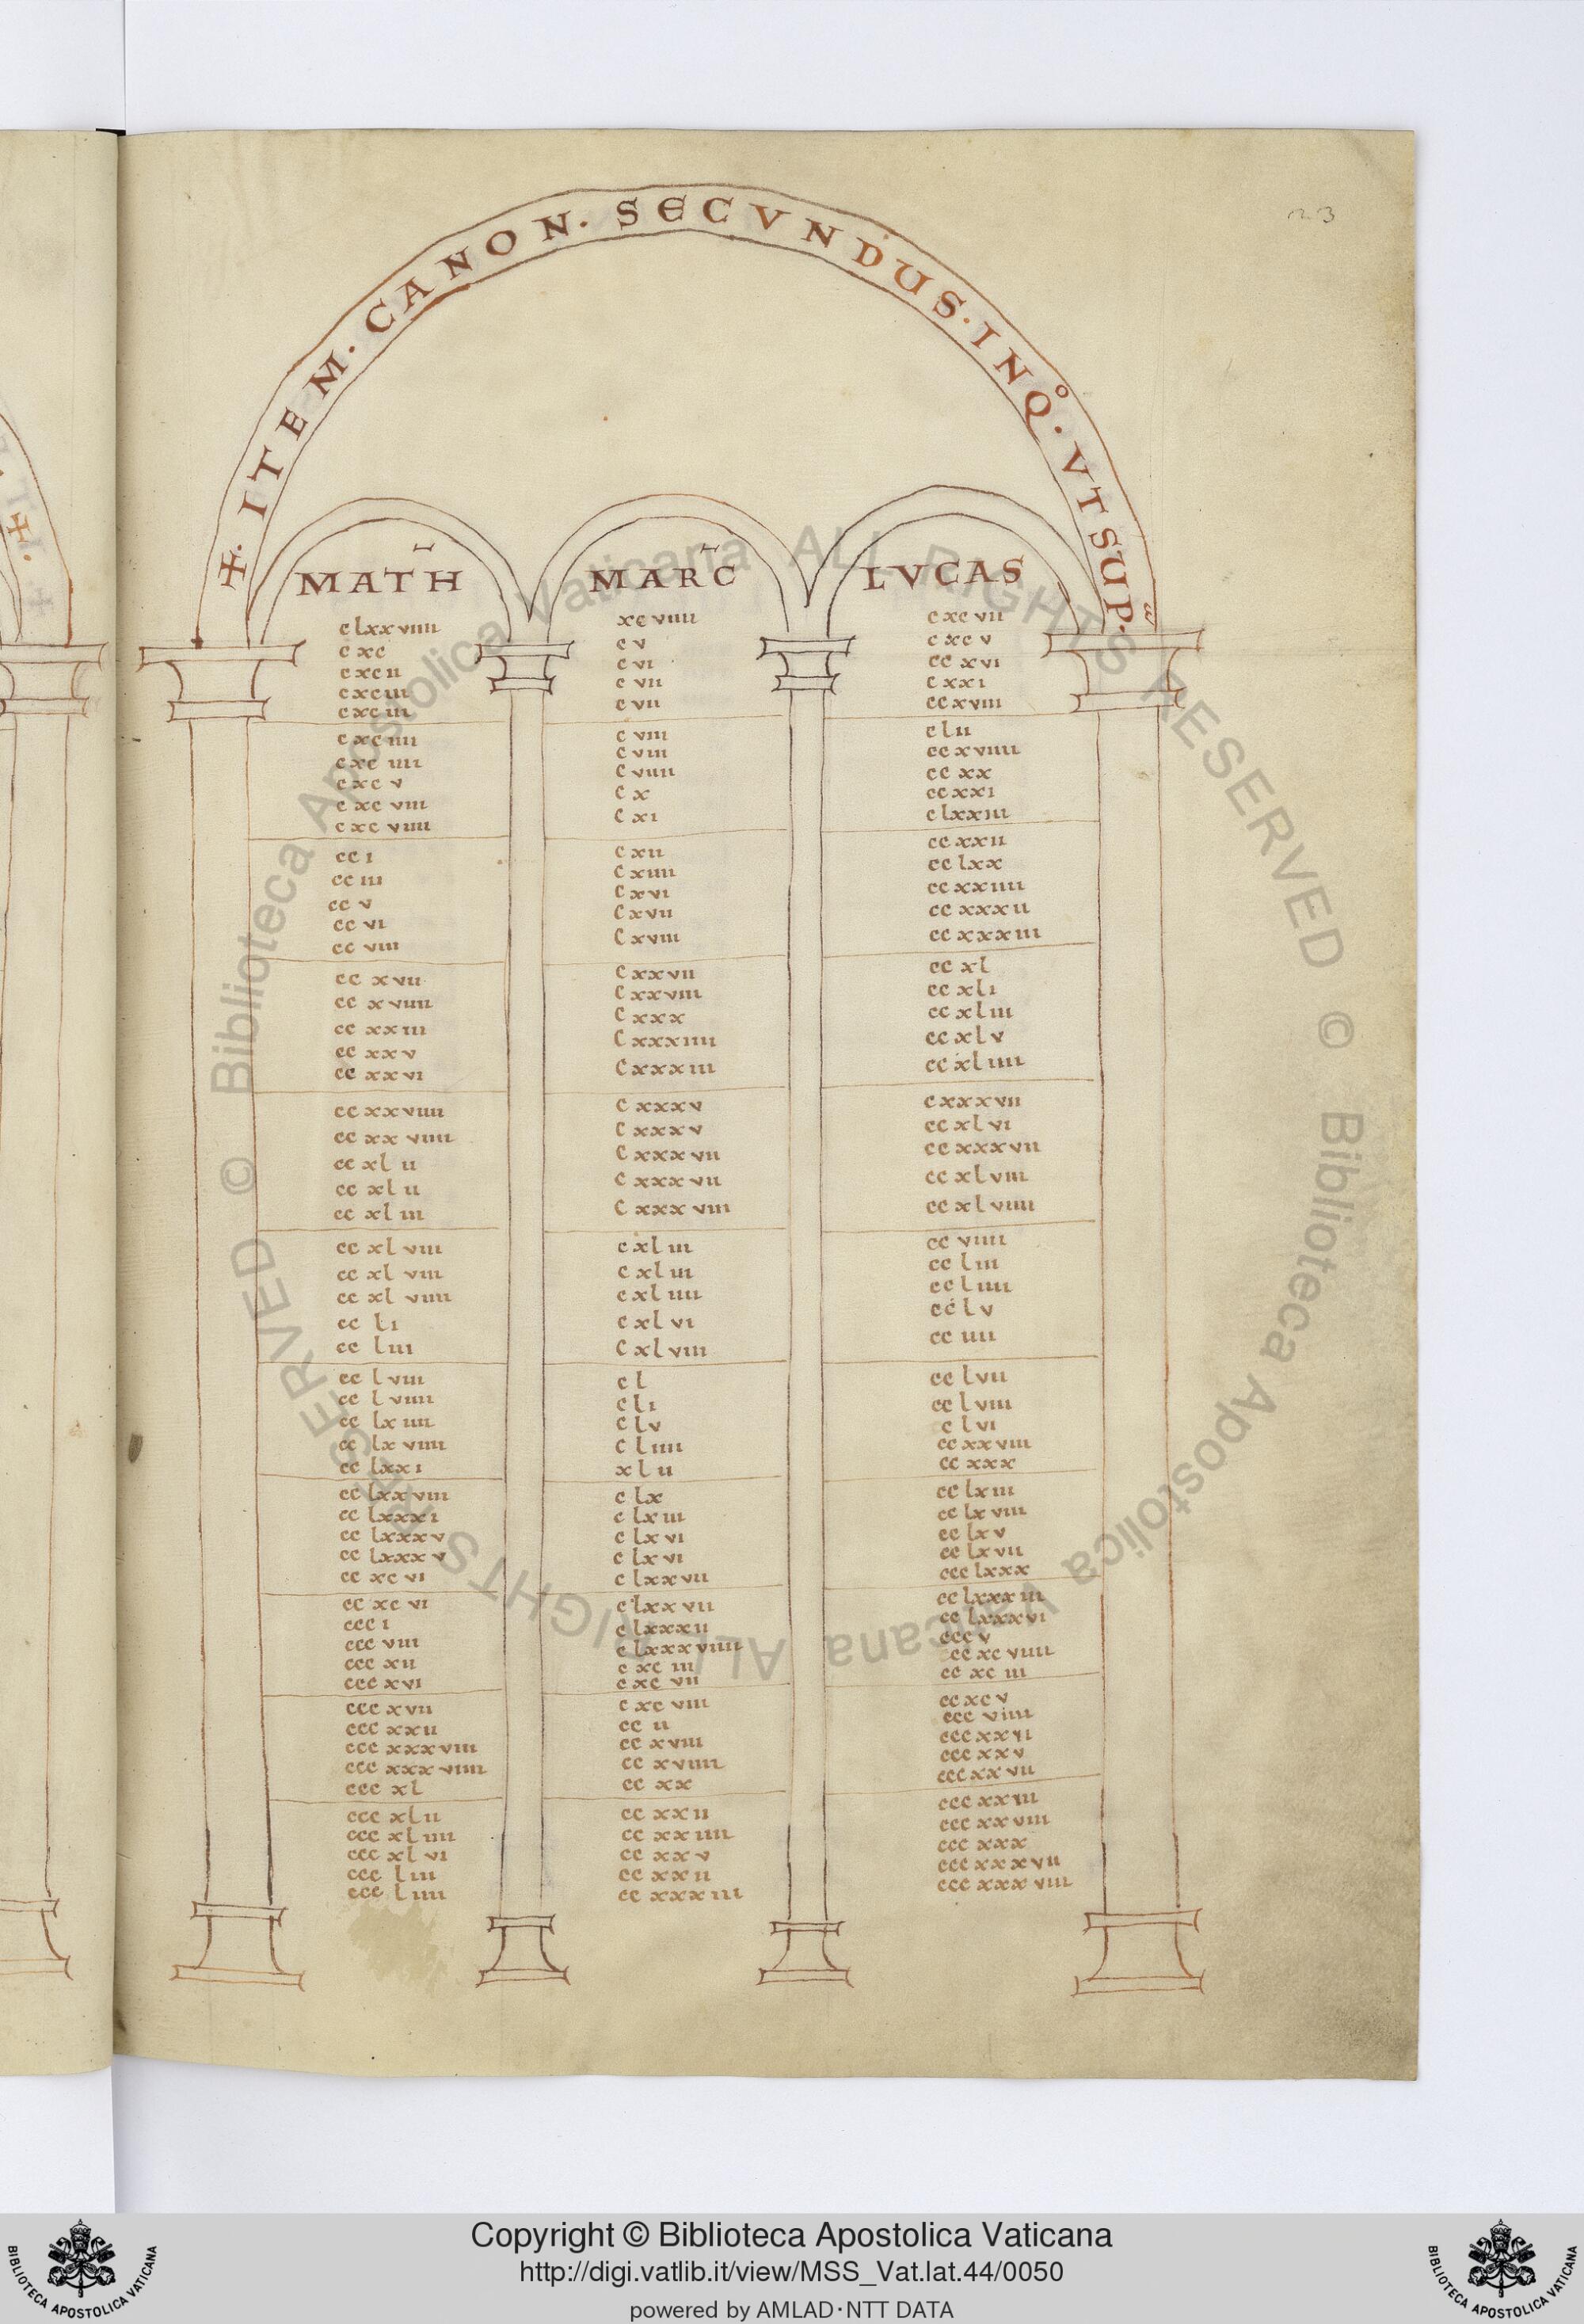 23
+· ITEM · CANON · SECVNDUS · INQº · VTSUP·
MATH MARC LVCAS
clxxviiii xcviiii cxcvii
cxc cv cxcv
cxcii cvi ccxvi
cxciii cvii cxxi
cxciii cvii ccxviii
cxciiii cviii clii
cxciiii cviii ccxviiii
cxcv cviiii ccxx
cxcviii cx ccxxi
cxcviiii cxi clxxiii
cci cxii ccxxii
cciii cxiiii cclxx
ccv cxvi ccxxiiii
ccvi cxvii ccxxxii
ccviii cxviii ccxxxiii
ccxvii cxxvii ccxl
ccxviiii cxxviii ccxli
ccxxiii cxxx ccxliii
ccxxv cxxxiiii ccxlv
ccxxvi cxxxiii ccxliiii
ccxxviiii cxxxv cxxxvii
ccxxviiii cxxxv ccxlvi
ccxlii cxxxvii ccxxxvii
ccxlii cxxxvii ccxlviii
ccxliii cxxxviii ccxlviiii
ccxlviii cxliii ccviiii
ccxlviii cxliii ccliii
ccxlviiii cxliiii ccliiii
ccli cxlvi cclv
ccliii cxlviii cciiii
cclviii cl cclvii
cclviiii cli cclviii
cclxiiii clv clvi
cclxviiii cliiii ccxxviii
cclxxi xlii ccxxx
cclxxviii clx cclxiii
cclxxxi clxiii cclxviii
cclxxxv clxvi cclxv
cclxxxv clxvi cclxvii
ccxcvi clxxvii ccclxxx
ccxcvi clxxvii cclxxxiii
ccci clxxxii cclxxxvi
cccviii clxxxviiii cccv
cccxii cxciii ccxcviiii
cccxvi cxcvii ccxciii
cccxvii cxcviii ccxcv
cccxxii ccii cccviiii
cccxxxviii ccxviii cccxxvi
cccxxxviiii ccxviiii cccxxv
cccxl ccxx cccxxvii
cccxlii ccxxii cccxxiii
cccxliiii ccxxiiii cccxxviii
cccxlvi ccxxv cccxxx
cccliii ccxxii cccxxxvii
cccliiii ccxxxiii cccxxxviii
© Biblioteca Apostolica Vaticana ALL RIGHTS RESERVED © Biblioteca Apostolica Vaticana ALL RIGHTS RESERVED
BIBLIOTECA APOSTOLICA VATICANA
Copyright © Biblioteca Apostolica Vaticana
http://digi.vatlib.it/view/MSS_Vat.lat.44/0050
powered by AMLAD·NTT DATA
BIBLIOTECA APOSTOLICA VATICANA